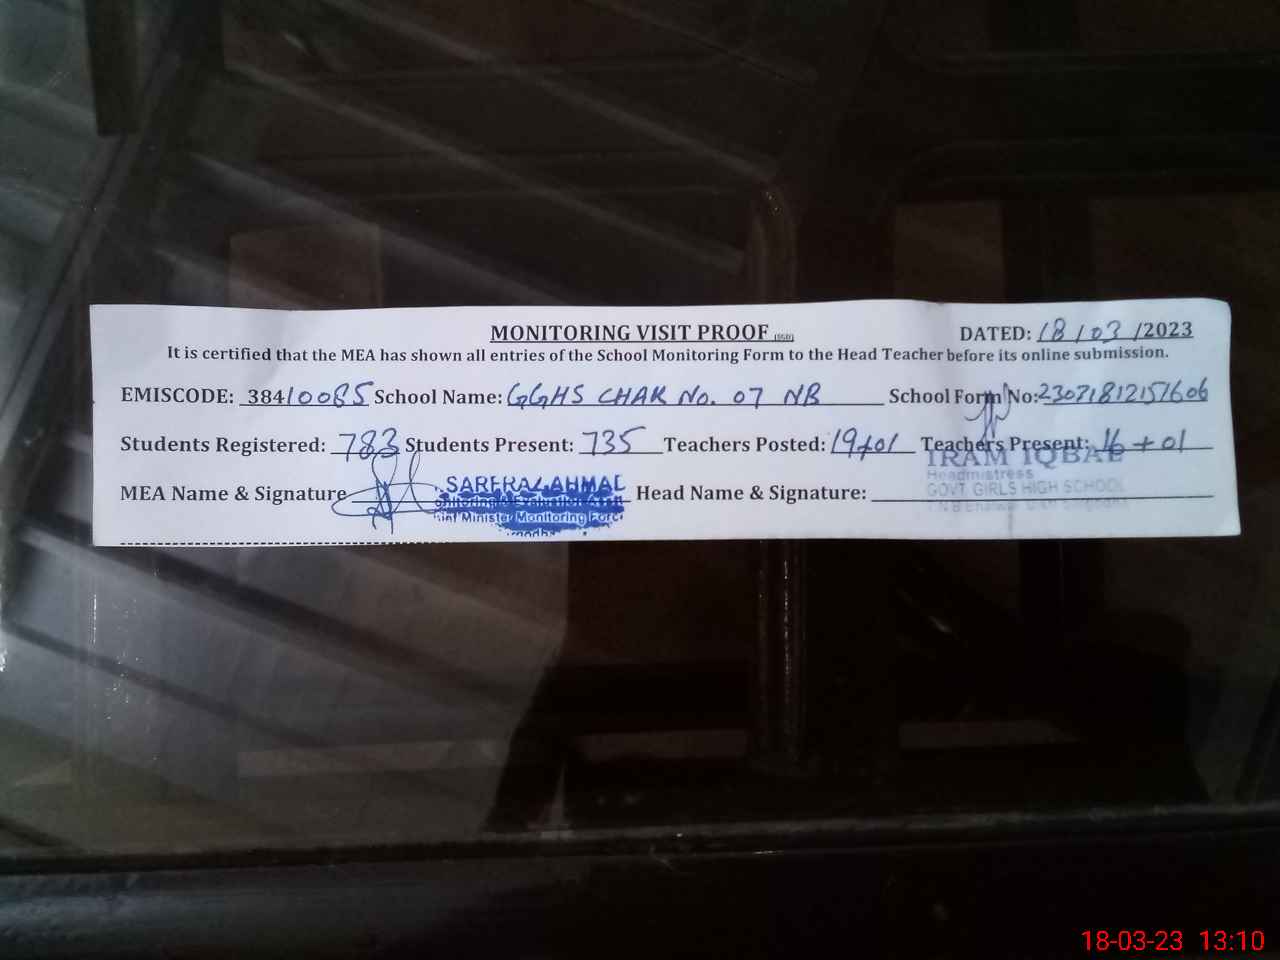 MONITORING VISIT PROOF (SGD) DATED: 18/03/2023
It is certified that the MEA has shown all entries of the School Monitoring Form to the Head Teacher before its online submission.
EMISCODE: 38410085 School Name: GGHS CHAK No. 07 NB School Form No: 23021812151606
Students Registered: 783 Students Present: 735 Teachers Posted: 19+01 Teachers Present: 16+01
IRAM IQBAL
Headmistress
MEA Name & Signature SARFRAZ AHMAD Head Name & Signature:
GOVT. GIRLS HIGH SCHOOL
Monitoring Force
18-03-23 13:10